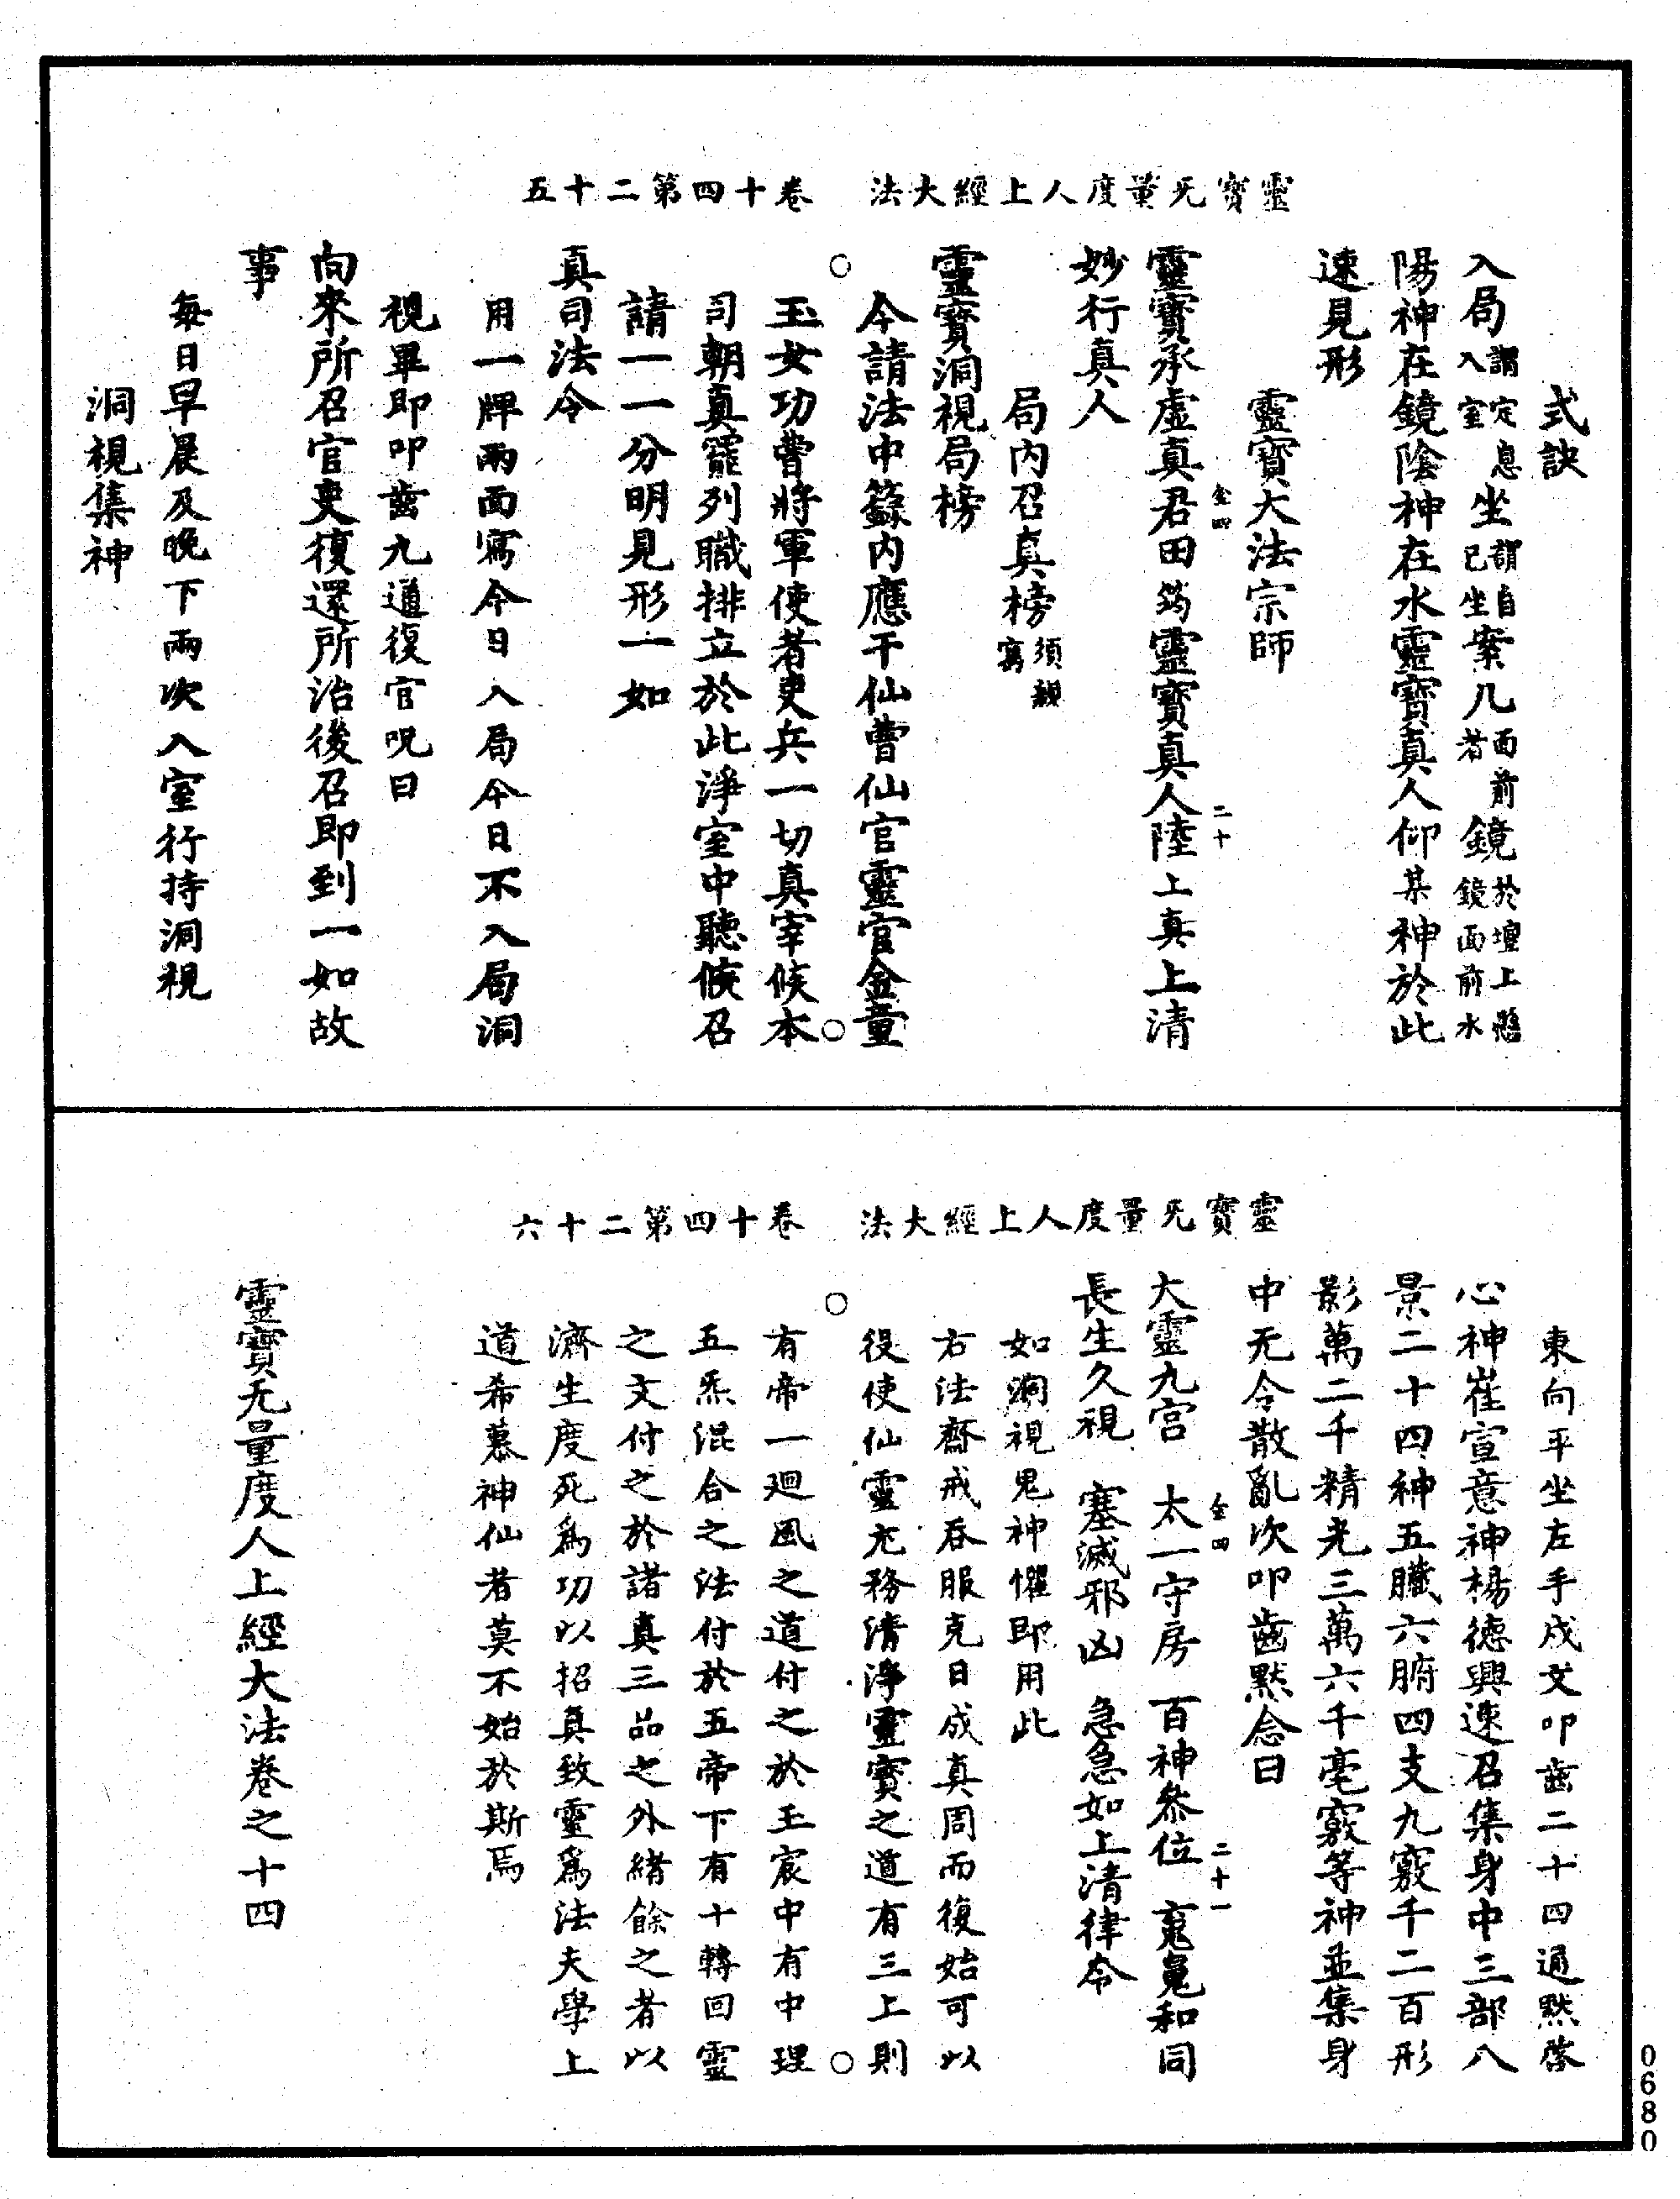 靈寶无量度人上經大法　卷十四第二十五
式訣
入局謂定息入室坐謂自己坐案几面前者鏡於壇上懸鏡面前水
陽神在鏡陰神在水靈寶真人仰某神於此
速見形
靈寶大法宗師
靈寶承虛真君田　靈寶真人陸上真上清
金四　二十
妙行真人
局內召真榜須親寫
靈寶洞視局榜
今請法中籙內應干仙曹仙官靈官金童
玉女功曹將軍使者吏兵一切真宰候本
司朝真罷列職排立於此淨室中聽候召
請一一分明見形一如
真司法令
用一牌兩面寫今日入局今日不入局洞
視畢即叩齒九通復官呪曰
向來所召官吏復還所治後召即到一如故
事
每日早晨及晚下兩次入室行持洞視
洞視集神
靈寶无量度人上經大法　卷十四第二十六
東向平坐左手戌文叩齒二十四通默啓
心神崔宣意神楊德興速召集身中三部八
景二十四神五臟六腑四支九竅千二百形
影萬二千精光三萬六千毫竅等神並集身
中无令散亂次叩齒默念曰
金四　二十一
大靈九宮　太一守房　百神參位　䰟䰟和同
長生久視　塞滅邪凶　急急如上清律令
如洞視鬼神懼即用此
右法齋戒吞服克日成真周而復始可以
役使仙靈充務清淨靈寶之道有三上則
有帝一廻風之道付之於玉宸中有中理
五炁混合之法付於五帝下有十轉回靈
之文付之於諸真三品之外緒餘之者以
濟生度死爲功以招真致靈爲法夫學上
道希慕神仙者莫不始於斯焉
靈寶无量度人上經大法卷之十四
0680